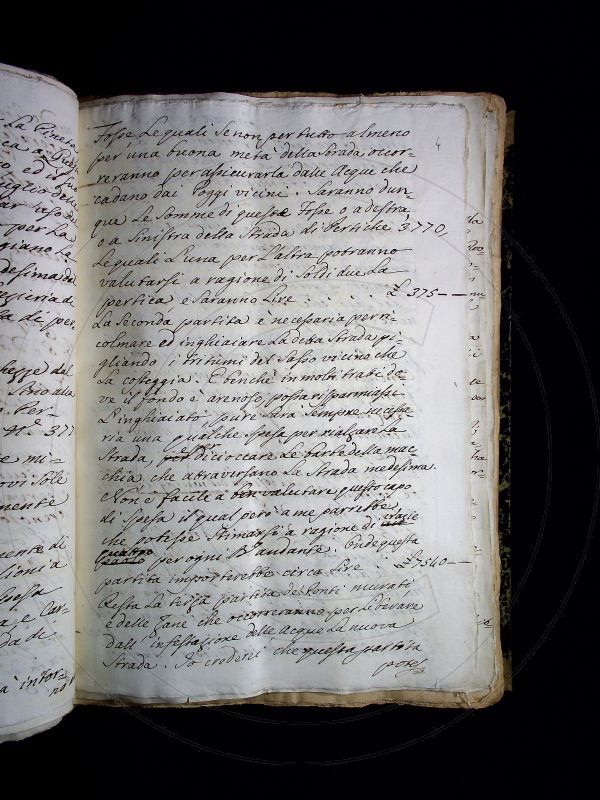 4
Fosse Le quali se non per tutto almeno
per una buona metà della Strada occor-
reranno per assicurarla dalle Acque che
cadano dai Poggi vicini. Saranno dun-
que Le Somme di queste Fosse o a destra,
o a Sinistra della Strada di Pertiche 3770,
Le quali L'una per L'altra potranno
valutarsi a ragione di Soldi due La
pertica e Saranno Lire . . . . . £ 375 — —
La Seconda partita è necessaria per ri-
colmare ed inghiaiare La detta Strada pi-
gliando i tritumi del Sasso vicino che
La costeggia. E benchè in molti tratti do-
ve il fondo è arenoso, possa risparmiarsi
L'inghiaiato, pure Sarà Sempre necessa-
ria una qualche Spesa per rialzare La
Strada, per dicioccare Le barbe della mac-
chia che attraversano La Strada medesima.
Non è facile a ben valutare questo capo
di Spesa il qual però a me parrebbe
che potesse Stimarsi a ragione di crazie
quattro per ogni B. andante. Onde questa
partita importerebbe circa Lire £ 7540 —
Resta La terza partita dei Ponti murati
e delle Zane che occorreranno per Liberare
dall' infestazione delle Acque La nuova
Strada. Io crederei che questa partita
potes
La Pineta
per La
desima del
sa di per
N.° 377
ovi Sole
mente
mente di
Spesa
a e Car-
da di
à intor-